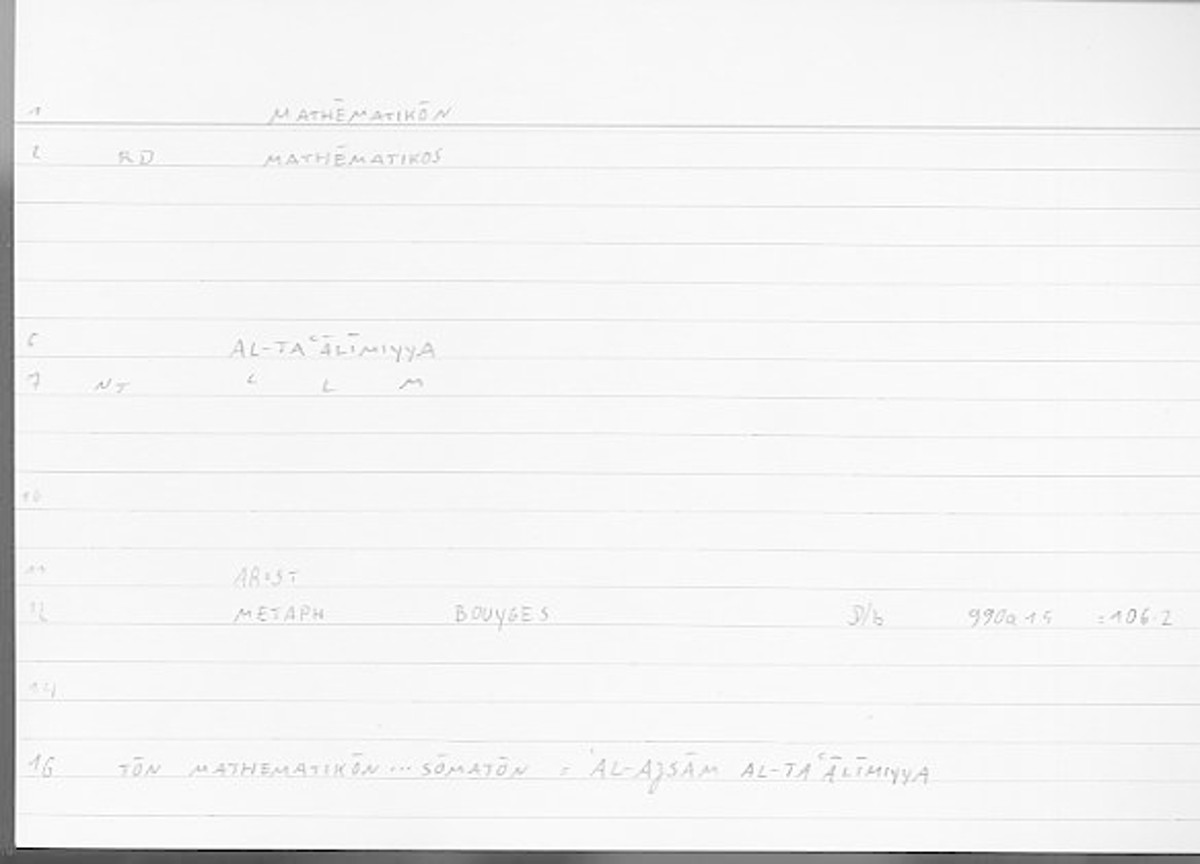 1 MATHĒMATIKŌN
2 RD MATHĒMATIKOS
6 AL-TAʿĀLĪMIYYA
7 NT ʿ L M
10
11 ARIST
12 METAPH BOUYGES 990a 15 =106.2
14
16 TŌN MATHEMATIKŌN ... SŌMATŌN = 'AL-AJSĀM AL-TAʿĀLĪMIYYA